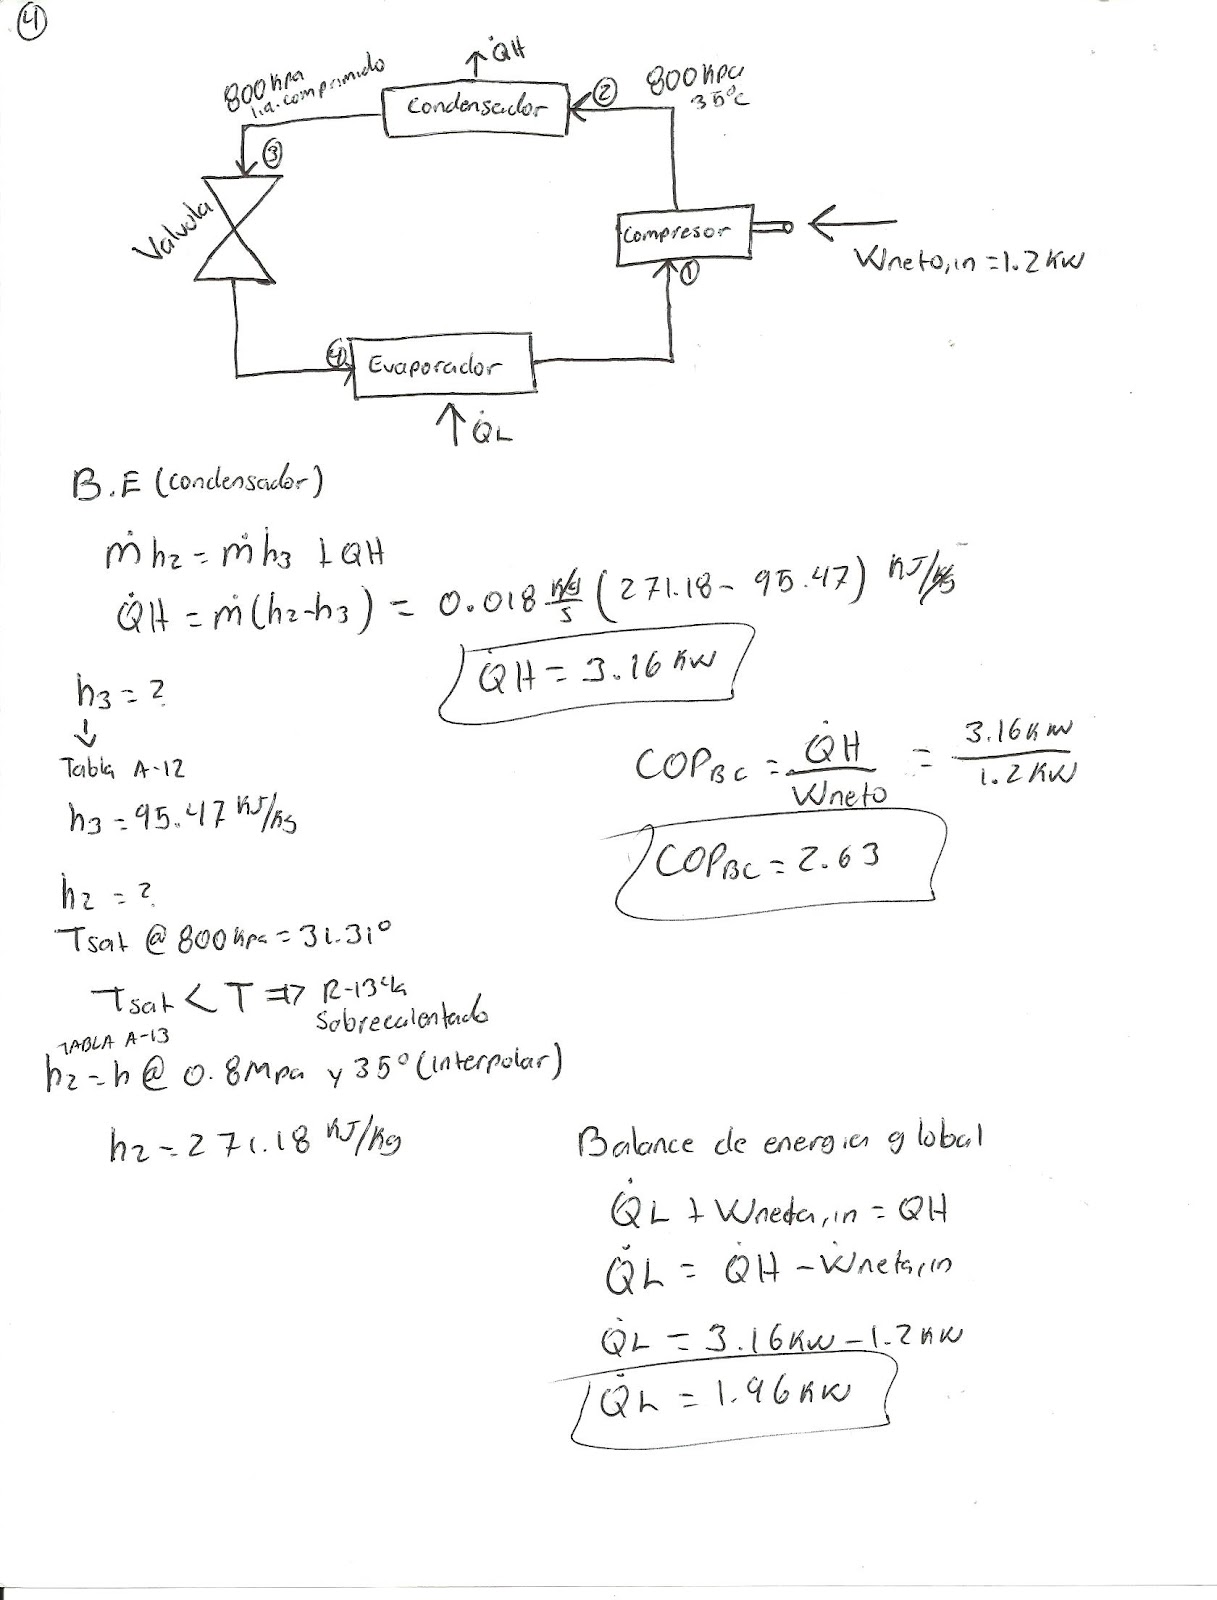 4
Q̇H
800 kpa
liq. comprimido
Condensador
2
800 kpa
35°C
3
Valvula
Compresor
1
Wneto,in = 1.2 KW
4
Evaporador
Q̇L
B.E (condensador)
ṁ h2 = ṁ h3 + QH
Q̇H = ṁ(h2-h3) = 0.018 Kg/s (271.18 - 95.47) KJ/Kg
Q̇H = 3.16 KW
h3 = ?
↓
Tabla A-12
h3 = 95.47 KJ/Kg
COPBC = Q̇H / Wneto = 3.16 KW / 1.2 KW
COPBC = 2.63
h2 = ?
Tsat @ 800 kpa = 31.31°
Tsat < T => R-134a
Sobrecalentado
TABLA A-13
h2 = h @ 0.8 Mpa y 35° (interpolar)
h2 = 271.18 KJ/Kg
Balance de energia global
Q̇L + Wneta,in = QH
Q̇L = Q̇H - Ẇneta,in
Q̇L = 3.16 KW - 1.2 KW
Q̇L = 1.96 KW